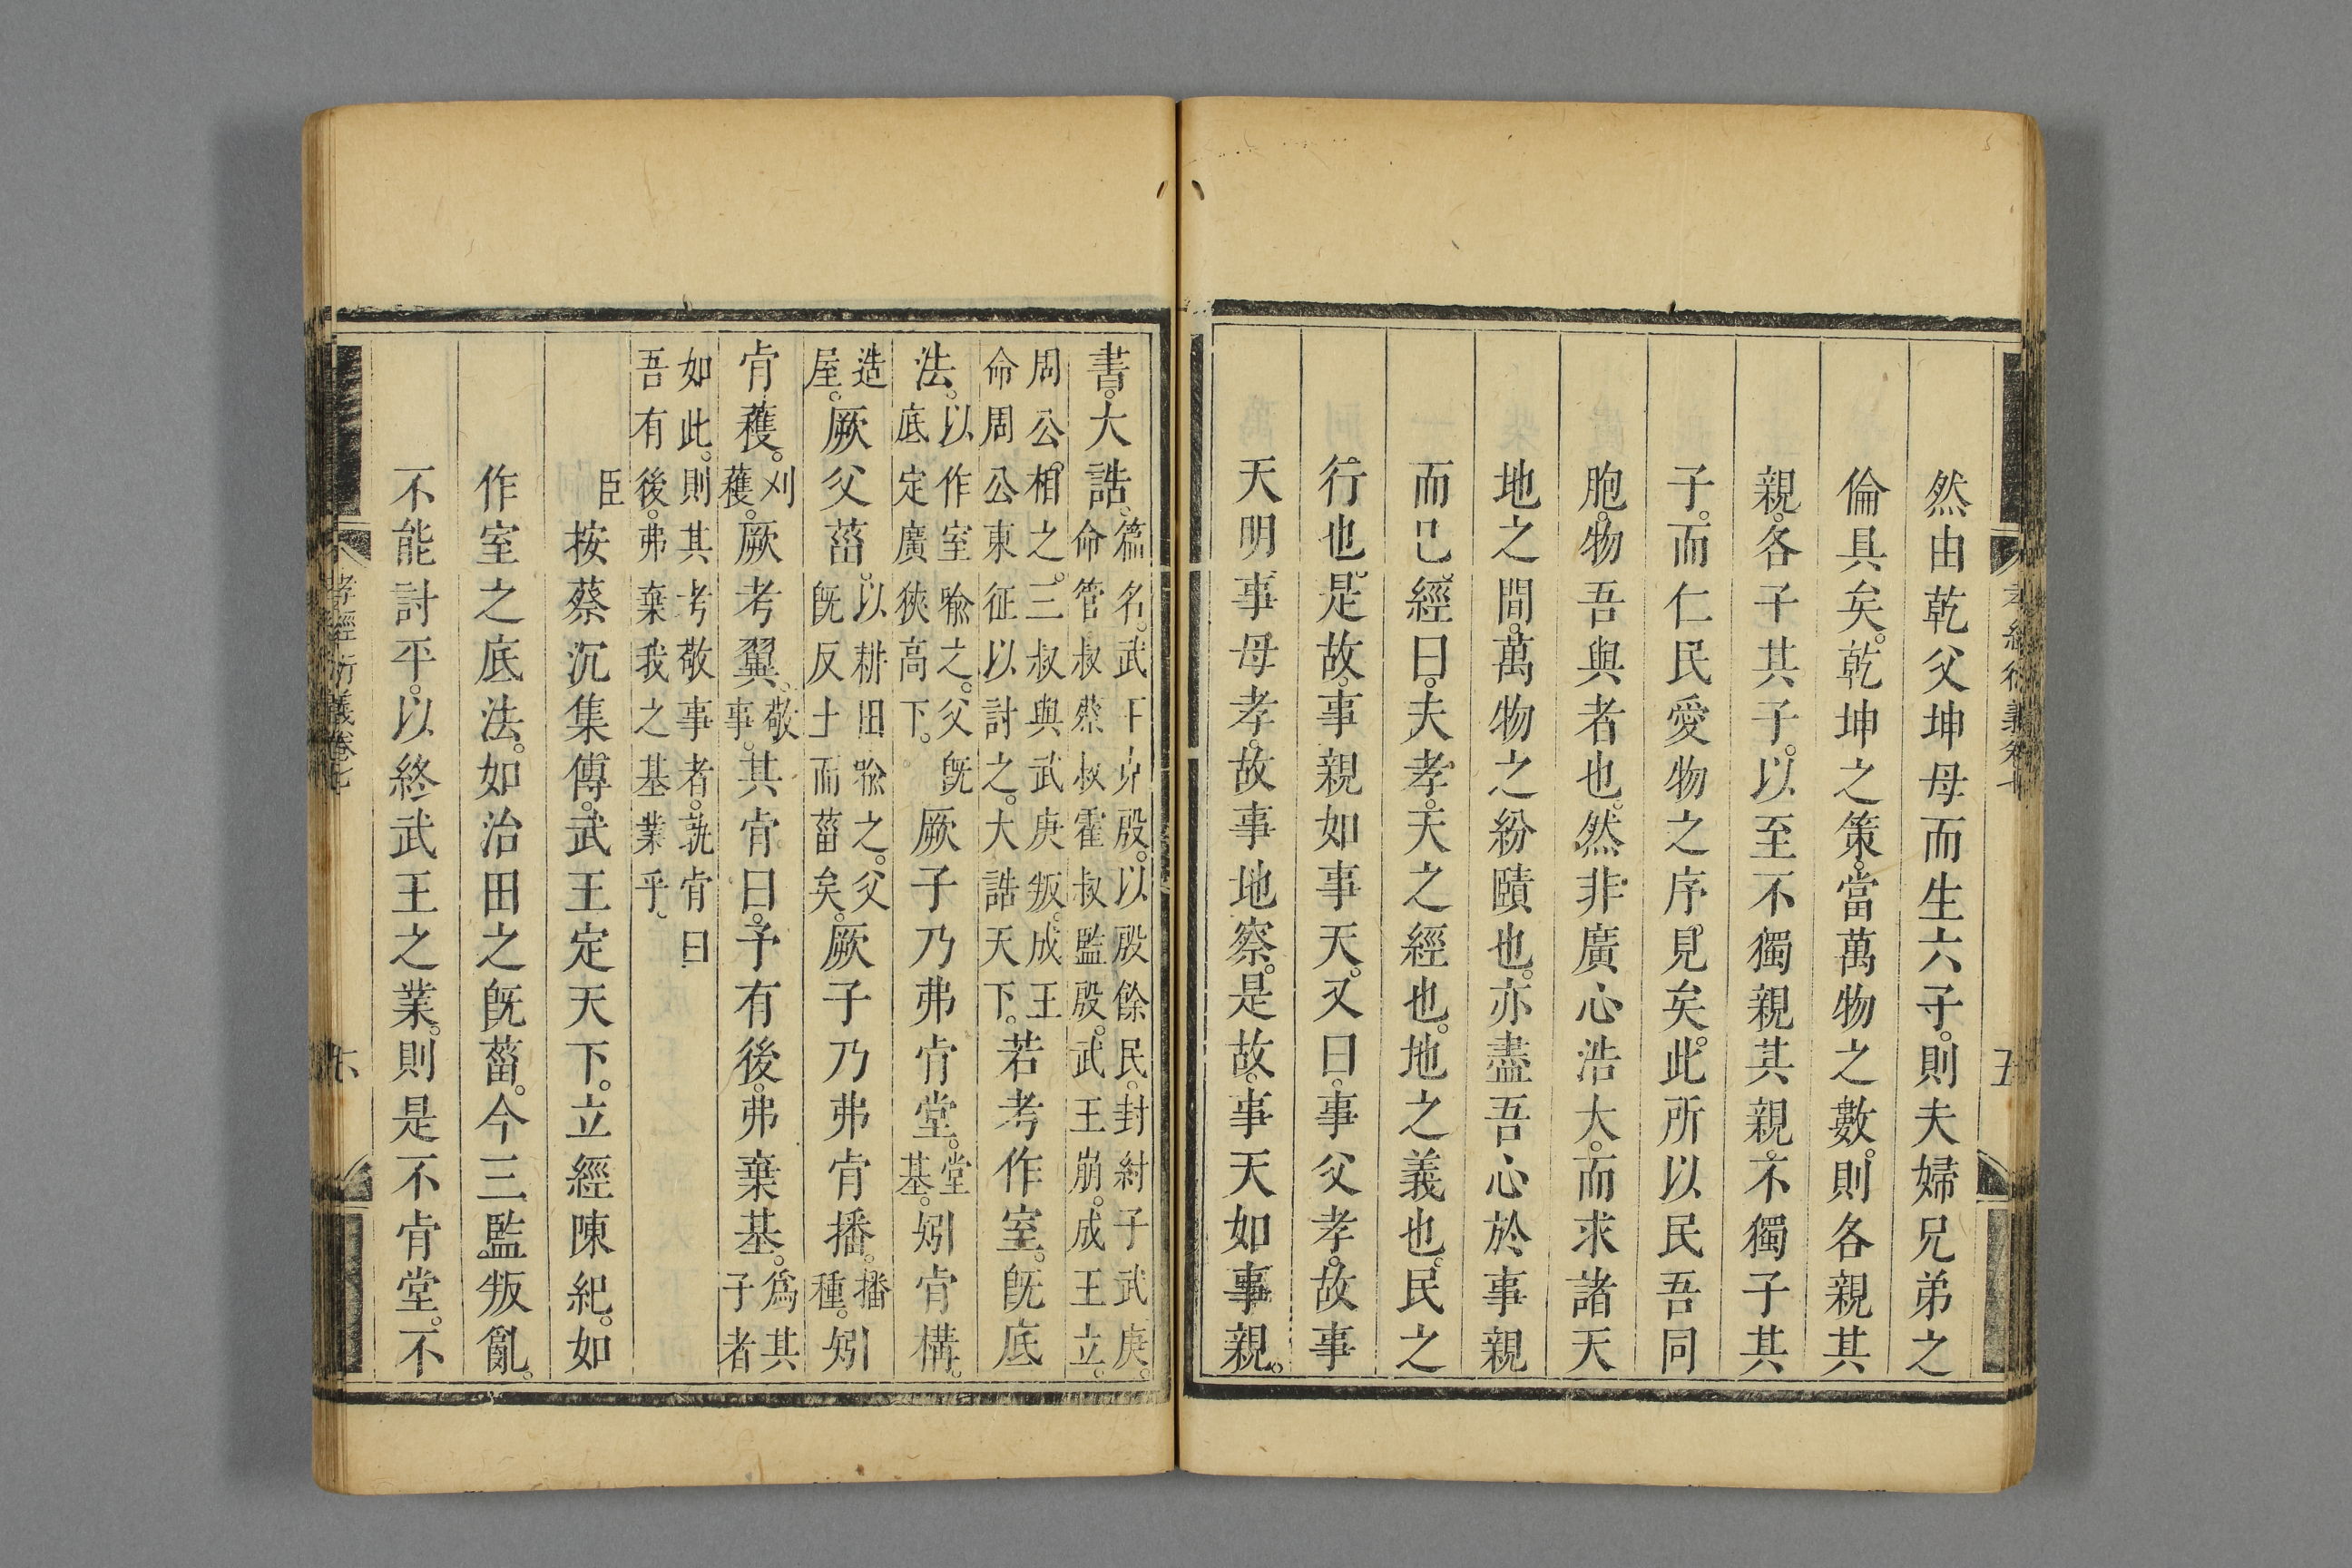 孝經衍義卷七
五
然由乾父坤母而生六子。則夫婦兄弟之
倫具矣。乾坤之策。當萬物之數。則各親其
親。各子其子。以至不獨親其親。不獨子其
子。而仁民愛物之序見矣。此所以民吾同
胞。物吾與者也。然非廣心浩大。而求諸天
地之間。萬物之紛賾也。亦盡吾心於事親
而已。經曰。夫孝。天之經也。地之義也。民之
行也。是故。事親如事天。又曰。事父孝。故事
天明。事母孝。故事地察。是故。事天如事親。
書。大誥。篇名。武王克殷。以殷餘民。封紂子武庚。
命管叔蔡叔霍叔監殷。武王崩。成王立。
周公相之。三叔與武庚叛。成王
命周公東征以討之。大誥天下。若考作室。旣底
法。以作室喻之。父旣
底定廣狹高下。厥子乃弗肯堂。堂基。矧肯構。
造屋。厥父菑。以耕田喻之。父
旣反土而菑矣。厥子乃弗肯播。播種。矧
肯穫。刈穫。厥考翼。敬事。其肯曰。予有後。弗棄基。爲其
子者
如此。則其考敬事者。孰肯曰
吾有後。弗棄我之基業乎。
臣按蔡沉集傳。武王定天下。立經陳紀。如
作室之底法。如治田之旣菑。今三監叛亂。
不能討平。以終武王之業。則是不肯堂。不
孝經衍義卷七
六